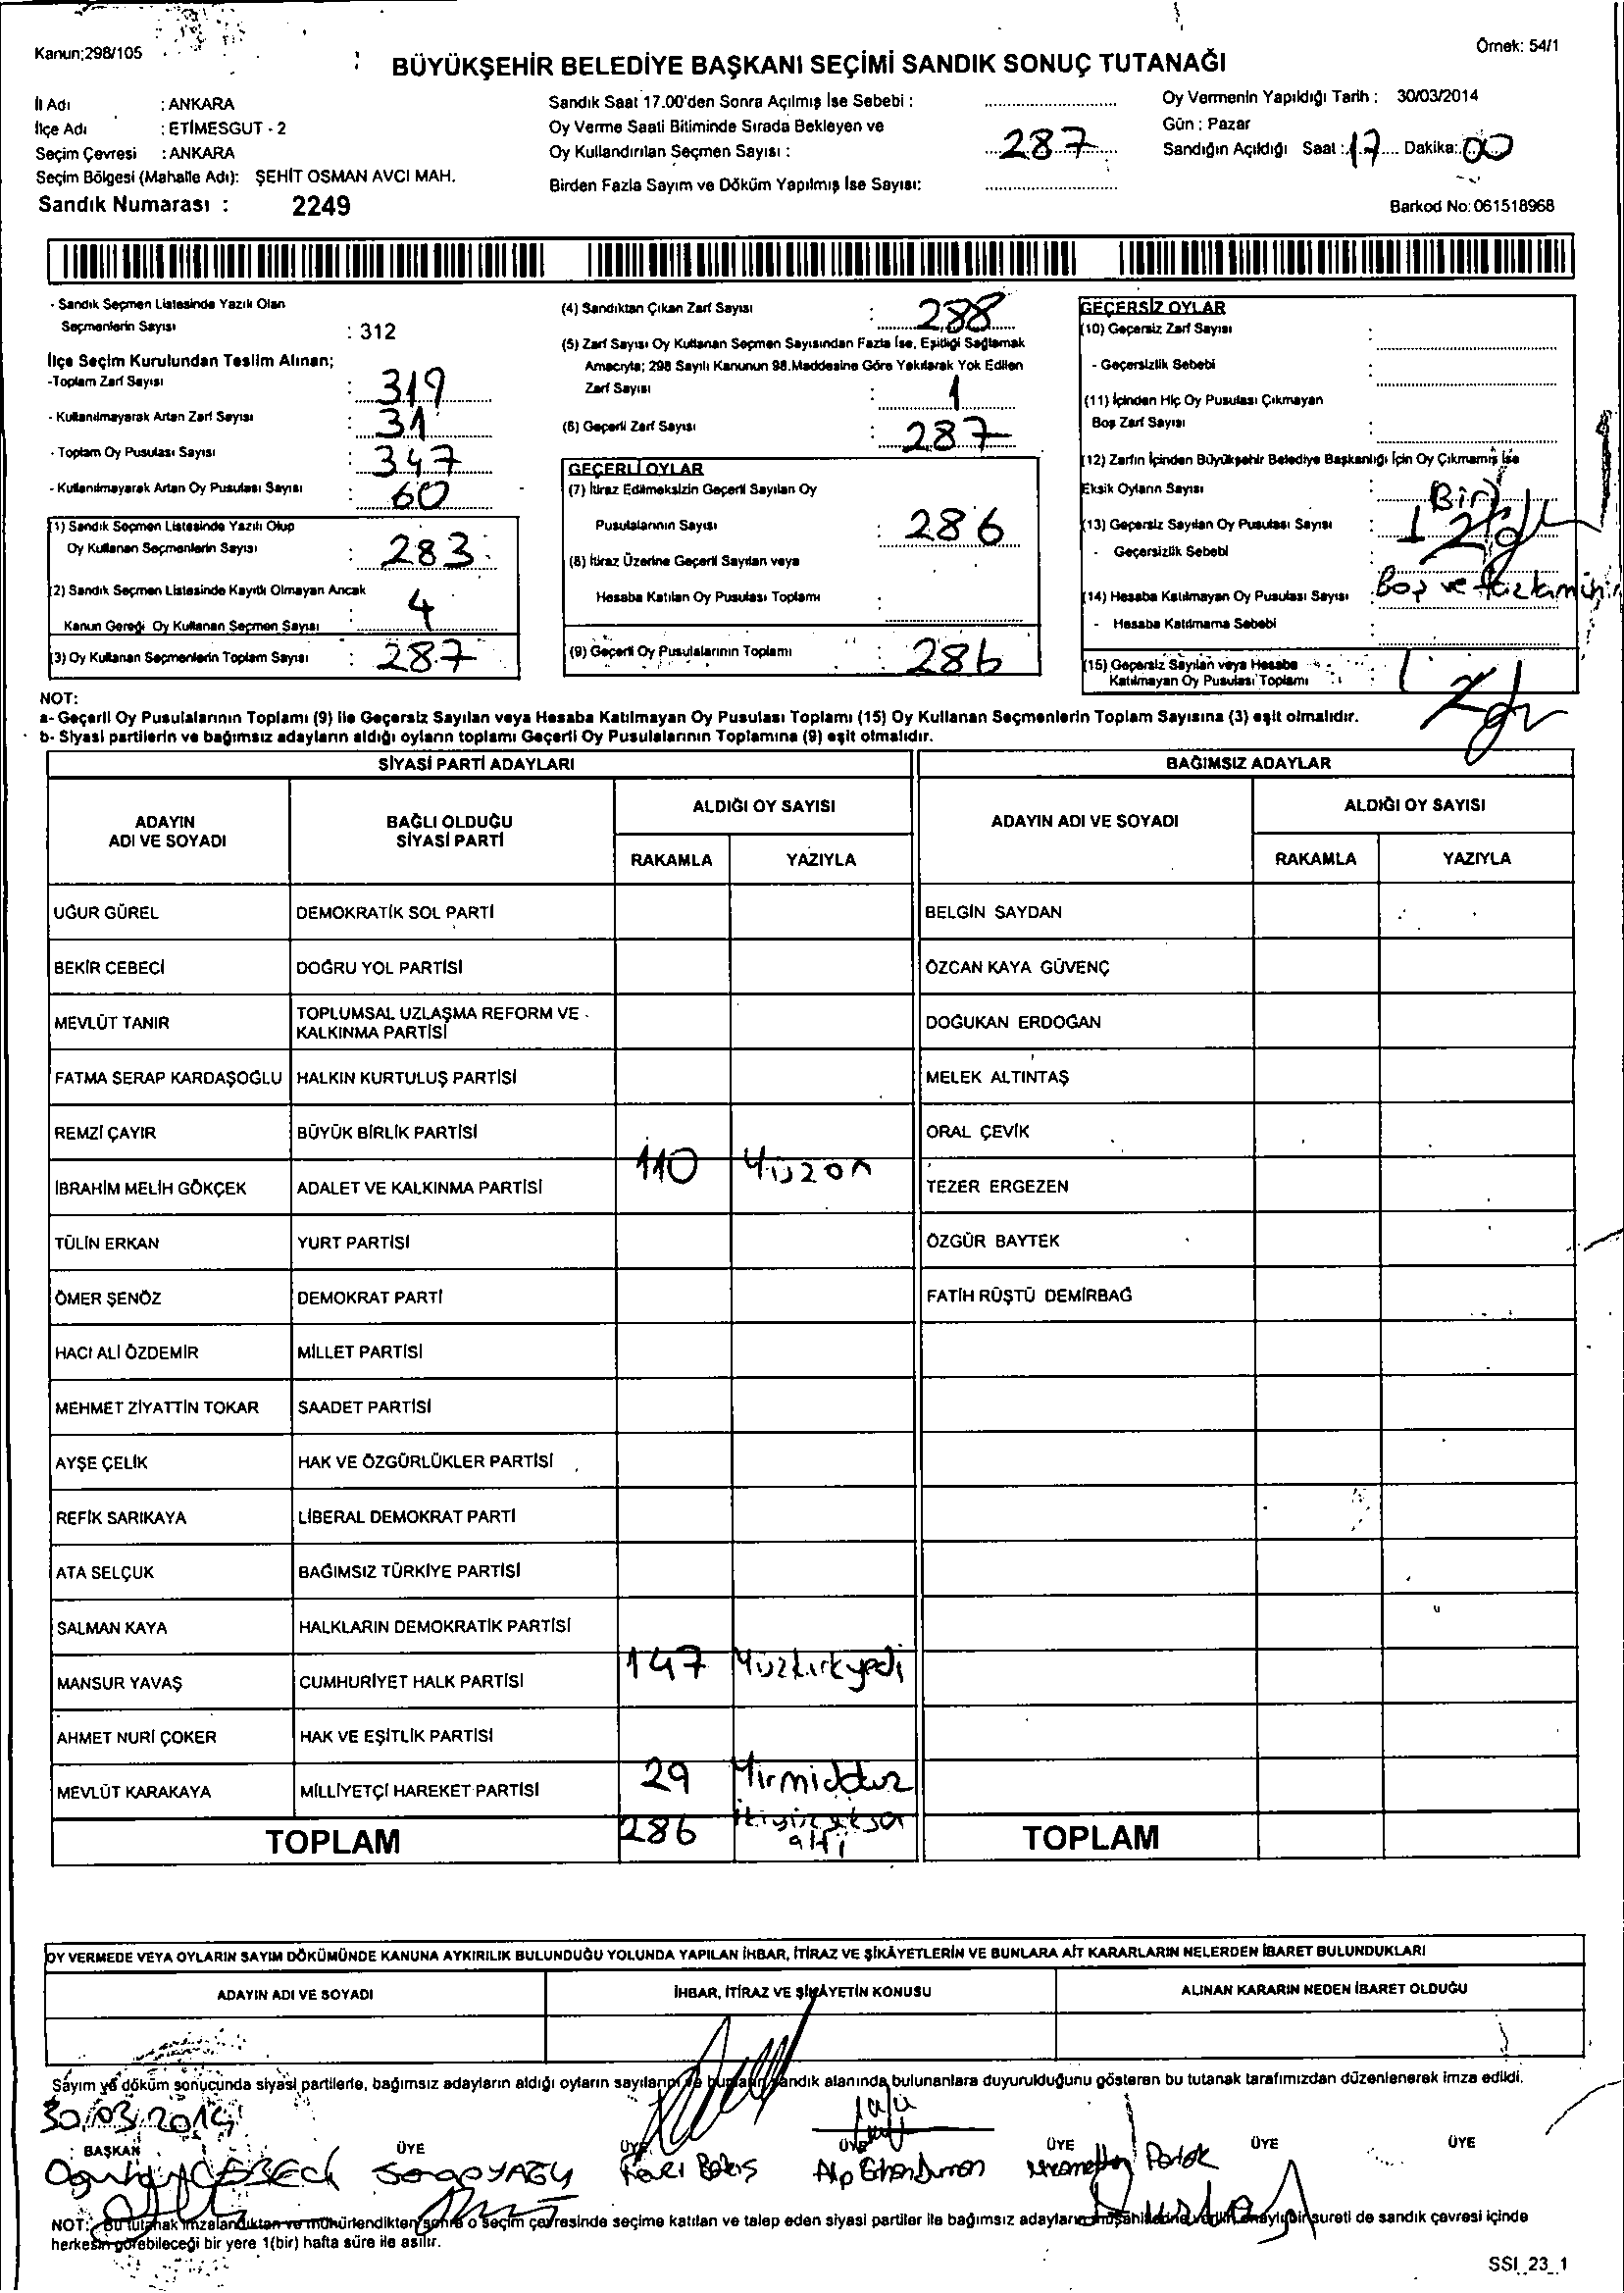 Kanun:298/105
Örnek: 54/1
BÜYÜKŞEHİR BELEDİYE BAŞKANI SEÇİMİ SANDIK SONUÇ TUTANAĞI
İl Adı : ANKARA
İlçe Adı : ETİMESGUT - 2
Seçim Çevresi : ANKARA
Seçim Bölgesi (Mahalle Adı): ŞEHİT OSMAN AVCI MAH.
Sandık Numarası : 2249
Sandık Saat 17.00'den Sonra Açılmış İse Sebebi :
Oy Verme Saati Bitiminde Sırada Bekleyen ve
Oy Kullandırılan Seçmen Sayısı : 287
Birden Fazla Sayım ve Döküm Yapılmış İse Sayısı:
Oy Vermenin Yapıldığı Tarih : 30/03/2014
Gün : Pazar
Sandığın Açıldığı Saat : 17 Dakika: 00
Barkod No: 061518968
- Sandık Seçmen Listesinde Yazılı Olan
Seçmenlerin Sayısı : 312
İlçe Seçim Kurulundan Teslim Alınan;
-Toplam Zarf Sayısı : 319
- Kullanılmayarak Artan Zarf Sayısı : 31
- Toplam Oy Pusulası Sayısı : 347
- Kullanılmayarak Artan Oy Pusulası Sayısı : 60
(1) Sandık Seçmen Listesinde Yazılı Olup
Oy Kullanan Seçmenlerin Sayısı : 283
(2) Sandık Seçmen Listesinde Kayıtlı Olmayan Ancak
Kanun Gereği Oy Kullanan Seçmen Sayısı : 4
(3) Oy Kullanan Seçmenlerin Toplam Sayısı : 287
(4) Sandıktan Çıkan Zarf Sayısı : 288
(5) Zarf Sayısı Oy Kullanan Seçmen Sayısından Fazla İse, Eşitliği Sağlamak
Amacıyla; 298 Sayılı Kanunun 98.Maddesine Göre Yakılarak Yok Edilen
Zarf Sayısı : 1
(6) Geçerli Zarf Sayısı : 287
GEÇERLİ OYLAR
(7) İtiraz Edilmeksizin Geçerli Sayılan Oy
Pusulalarının Sayısı : 286
(8) İtiraz Üzerine Geçerli Sayılan veya
Hesaba Katılan Oy Pusulası Toplamı :
(9) Geçerli Oy Pusulalarının Toplamı : 286
GEÇERSİZ OYLAR
(10) Geçersiz Zarf Sayısı :
- Geçersizlik Sebebi :
(11) İçinden Hiç Oy Pusulası Çıkmayan
Boş Zarf Sayısı :
(12) Zarfın İçinden Büyükşehir Belediye Başkanlığı İçin Oy Çıkmamış İse
Eksik Oyların Sayısı :
Bir
(13) Geçersiz Sayılan Oy Pusulası Sayısı : 1
- Geçersizlik Sebebi :
Boş ve
(14) Hesaba Katılmayan Oy Pusulası Sayısı :
- Hesaba Katılmama Sebebi :
(15) Geçersiz Sayılan veya Hesaba : 1
Katılmayan Oy Pusulası Toplamı
NOT:
a- Geçerli Oy Pusulalarının Toplamı (9) ile Geçersiz Sayılan veya Hesaba Katılmayan Oy Pusulası Toplamı (15) Oy Kullanan Seçmenlerin Toplam Sayısına (3) eşit olmalıdır.
b- Siyasi partilerin ve bağımsız adayların aldığı oyların toplamı Geçerli Oy Pusulalarının Toplamına (9) eşit olmalıdır.
SİYASİ PARTİ ADAYLARI BAĞIMSIZ ADAYLAR
ADAYIN ADI VE SOYADI BAĞLI OLDUĞU SİYASİ PARTİ ALDIĞI OY SAYISI ADAYIN ADI VE SOYADI ALDIĞI OY SAYISI
RAKAMLA YAZIYLA RAKAMLA YAZIYLA
UĞUR GÜREL DEMOKRATİK SOL PARTİ BELGİN SAYDAN
BEKİR CEBECİ DOĞRU YOL PARTİSİ ÖZCAN KAYA GÜVENÇ
MEVLÜT TANIR TOPLUMSAL UZLAŞMA REFORM VE KALKINMA PARTİSİ DOĞUKAN ERDOĞAN
FATMA SERAP KARDAŞOĞLU HALKIN KURTULUŞ PARTİSİ MELEK ALTINTAŞ
REMZİ ÇAYIR BÜYÜK BİRLİK PARTİSİ ORAL ÇEVİK
İBRAHİM MELİH GÖKÇEK ADALET VE KALKINMA PARTİSİ 110 Yüzon TEZER ERGEZEN
TÜLİN ERKAN YURT PARTİSİ ÖZGÜR BAYTEK
ÖMER ŞENÖZ DEMOKRAT PARTİ FATİH RÜŞTÜ DEMİRBAĞ
HACI ALİ ÖZDEMİR MİLLET PARTİSİ
MEHMET ZİYATTİN TOKAR SAADET PARTİSİ
AYŞE ÇELİK HAK VE ÖZGÜRLÜKLER PARTİSİ
REFİK SARIKAYA LİBERAL DEMOKRAT PARTİ
ATA SELÇUK BAĞIMSIZ TÜRKİYE PARTİSİ
SALMAN KAYA HALKLARIN DEMOKRATİK PARTİSİ
MANSUR YAVAŞ CUMHURİYET HALK PARTİSİ 147 Yüzkırkyedi
AHMET NURİ ÇOKER HAK VE EŞİTLİK PARTİSİ
MEVLÜT KARAKAYA MİLLİYETÇİ HAREKET PARTİSİ 29 Yirmidokuz
TOPLAM 286 ikiyüzseksen altı TOPLAM
OY VERMEDE VEYA OYLARIN SAYIM DÖKÜMÜNDE KANUNA AYKIRILIK BULUNDUĞU YOLUNDA YAPILAN İHBAR, İTİRAZ VE ŞİKÂYETLERİN VE BUNLARA AİT KARARLARIN NELERDEN İBARET BULUNDUKLARI
ADAYIN ADI VE SOYADI İHBAR, İTİRAZ VE ŞİKÂYETİN KONUSU ALINAN KARARIN NEDEN İBARET OLDUĞU
Sayım ve döküm sonucunda siyasi partilerle, bağımsız adayların aldığı oyların sayılarını ve bunların sandık alanında bulunanlara duyurulduğunu gösteren bu tutanak tarafımızdan düzenlenerek imza edildi.
30/03/2014
BAŞKAN ÜYE ÜYE ÜYE ÜYE ÜYE ÜYE
NOT: Bu tutanak imzalandıktan ve mühürlendikten sonra o seçim çevresinde seçime katılan ve talep eden siyasi partiler ile bağımsız adayların müşahitlerine verilir. Onaylı bir sureti de sandık çevresi içinde
herkesin görebileceği bir yere 1(bir) hafta süre ile asılır.
SSI_23_1